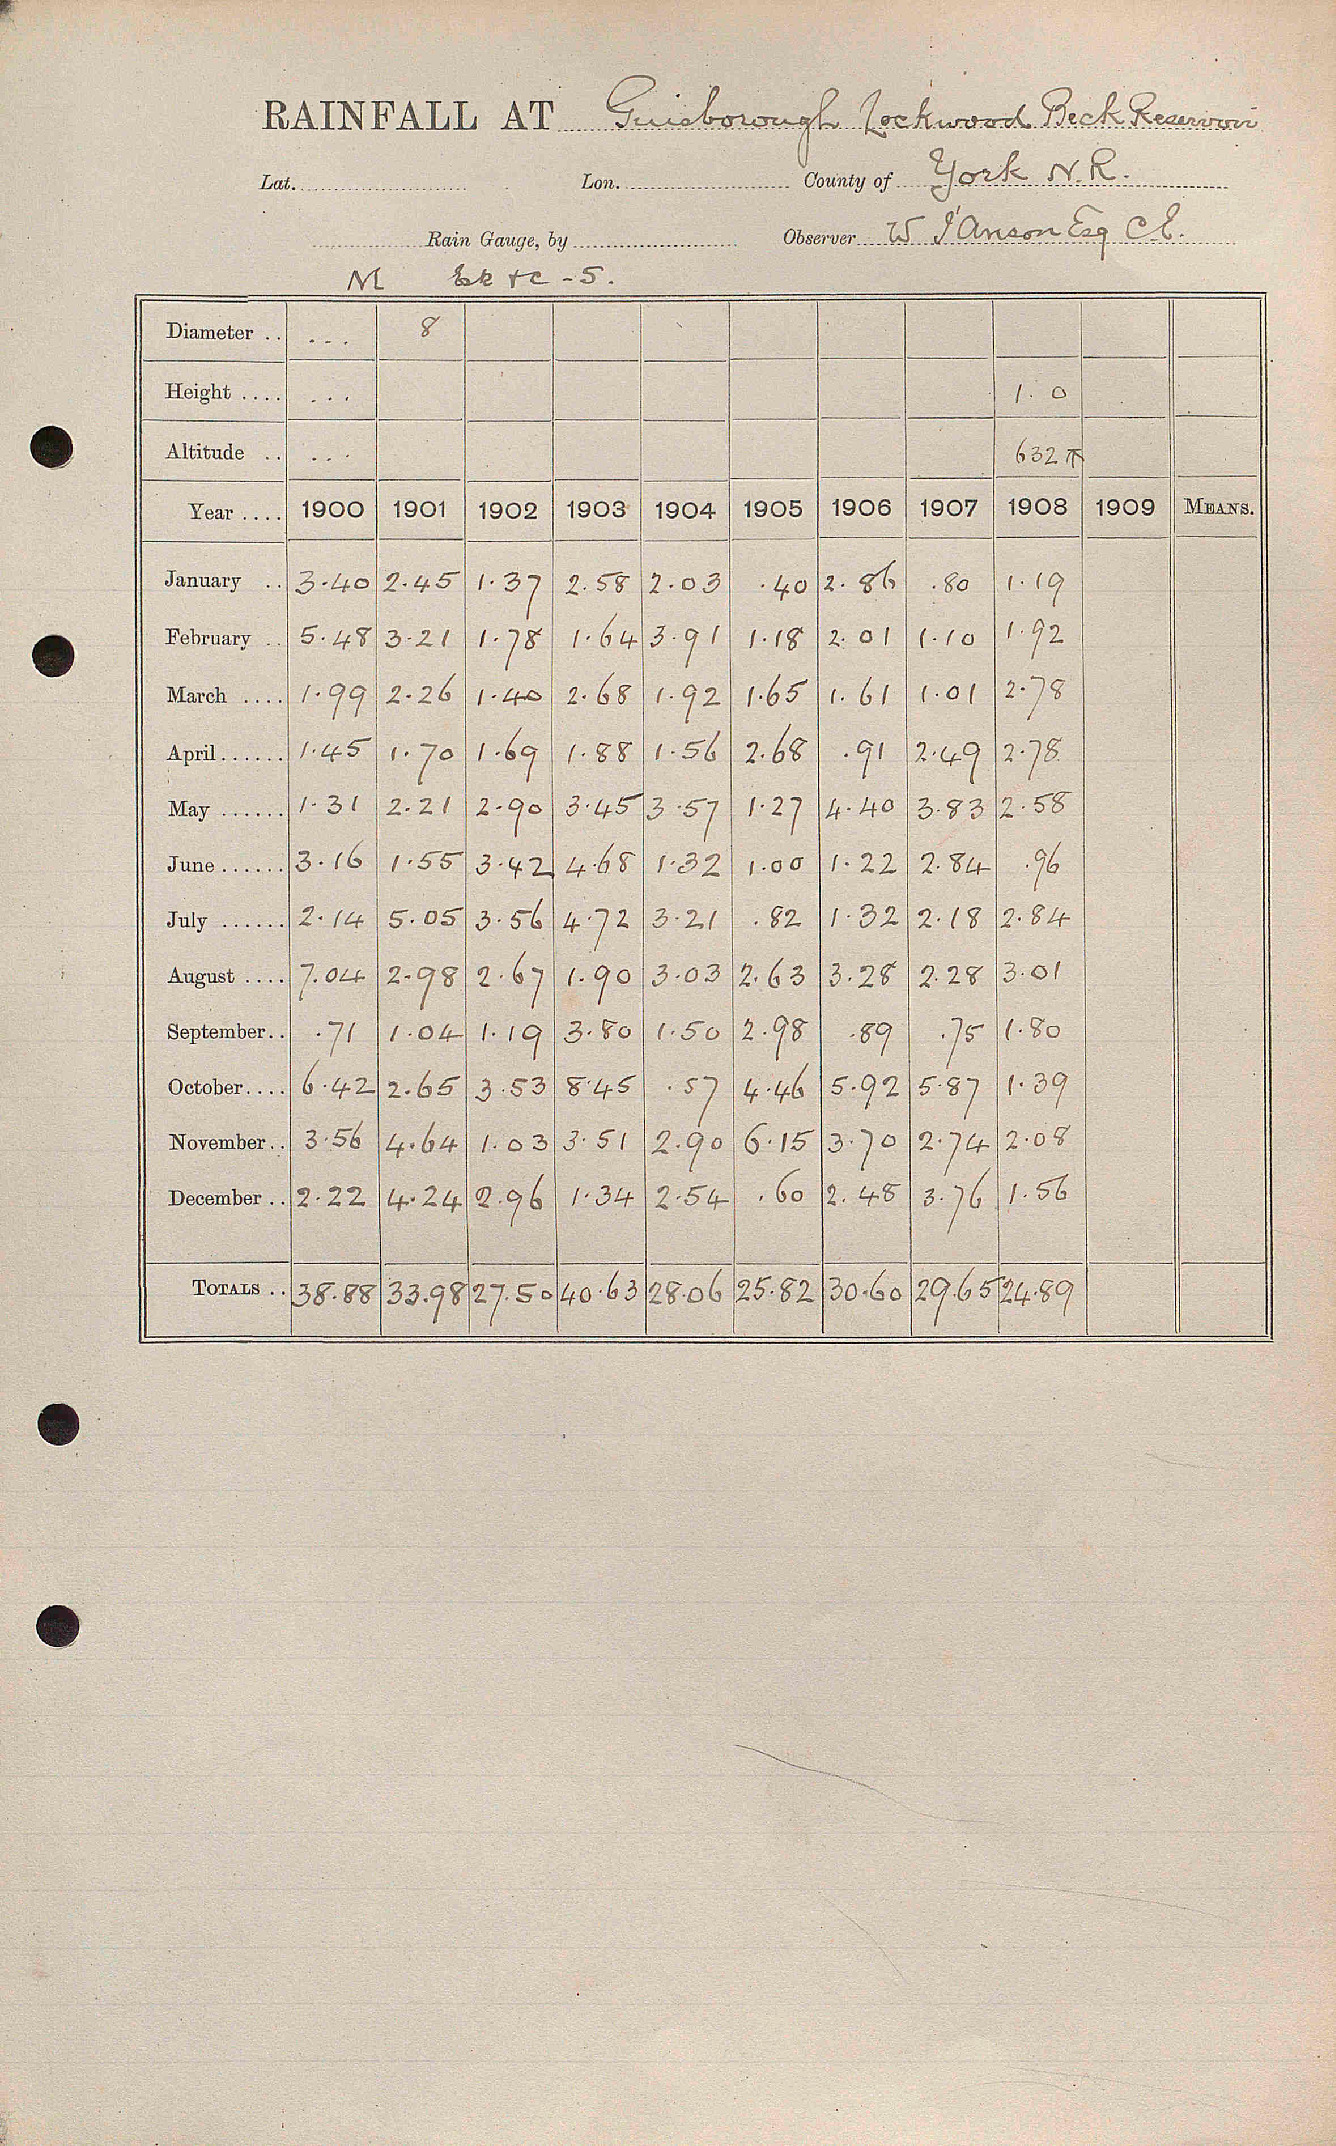 RAINFALL AT Guisborough Lockwood Beck Reservoir
Lat. Lon. County of York N.R.
Rain Gauge, by Observer W I'Anson Esq C.E.
M - 5.
Diameter .. ... 8
Height .... ... 1. 0
Altitude .. ... 632
Year .... 1900 1901 1902 1903 1904 1905 1906 1907 1908 1909 MEANS.
January .. 3.40 2.45 1.37 2.58 2.03 .40 2.86 .80 1.19
February .. 5.48 3.21 1.78 1.64 3.91 1.18 2.01 1.10 1.92
March .... 1.99 2.26 1.40 2.68 1.92 1.65 1.61 1.01 2.78
April...... 1.45 1.70 1.69 1.88 1.56 2.68 .91 2.49 2.78
May ...... 1.31 2.21 2.90 3.45 3.57 1.27 4.40 3.83 2.58
June...... 3.16 1.55 3.42 4.68 1.32 1.00 1.22 2.84 .96
July ...... 2.14 5.05 3.56 4.72 3.21 .82 1.32 2.18 2.84
August .... 7.04 2.98 2.67 1.90 3.03 2.63 3.28 2.28 3.01
September.. .71 1.04 1.19 3.80 1.50 2.98 .89 .75 1.80
October.... 6.42 2.65 3.53 8.45 .57 4.46 5.92 5.87 1.39
November.. 3.56 4.64 1.03 3.51 2.90 6.15 3.70 2.74 2.08
December .. 2.22 4.24 2.96 1.34 2.54 .60 2.48 3.76 1.56
TOTALS .. 38.88 33.98 27.50 40.63 28.06 25.82 30.60 29.65 24.89